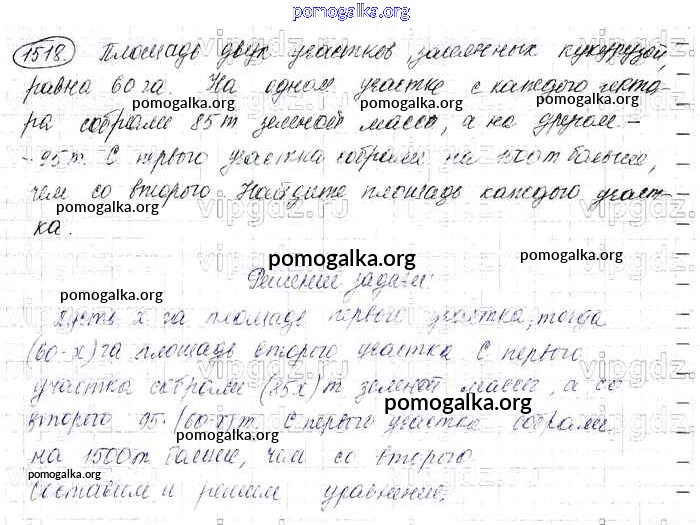 pomogalka.org
1518. Площадь двух участков, засеянных кукурузой,
равна 60 га. На одном участке с каждого гекта-
pomogalka.org pomogalka.org pomogalka.org
ра собрали 85 т зеленой массы, а на другом -
- 95 т. С первого участка собрали на т больше,
чем со второго. Найдите площадь каждого участ-
pomogalka.org
ка.
pomogalka.org pomogalka.org
Решение задачи:
pomogalka.org
Пусть x га площадь первого участка, тогда
(60-x) га площадь второго участка. С первого
участка собрали (85x) т зеленой массы, а со
pomogalka.org
второго 95·(60-x) т. С первого участка собрали
pomogalka.org
на 1500 т больше, чем со второго.
pomogalka.org
Составим и решим уравнение:
vipgdz.ru